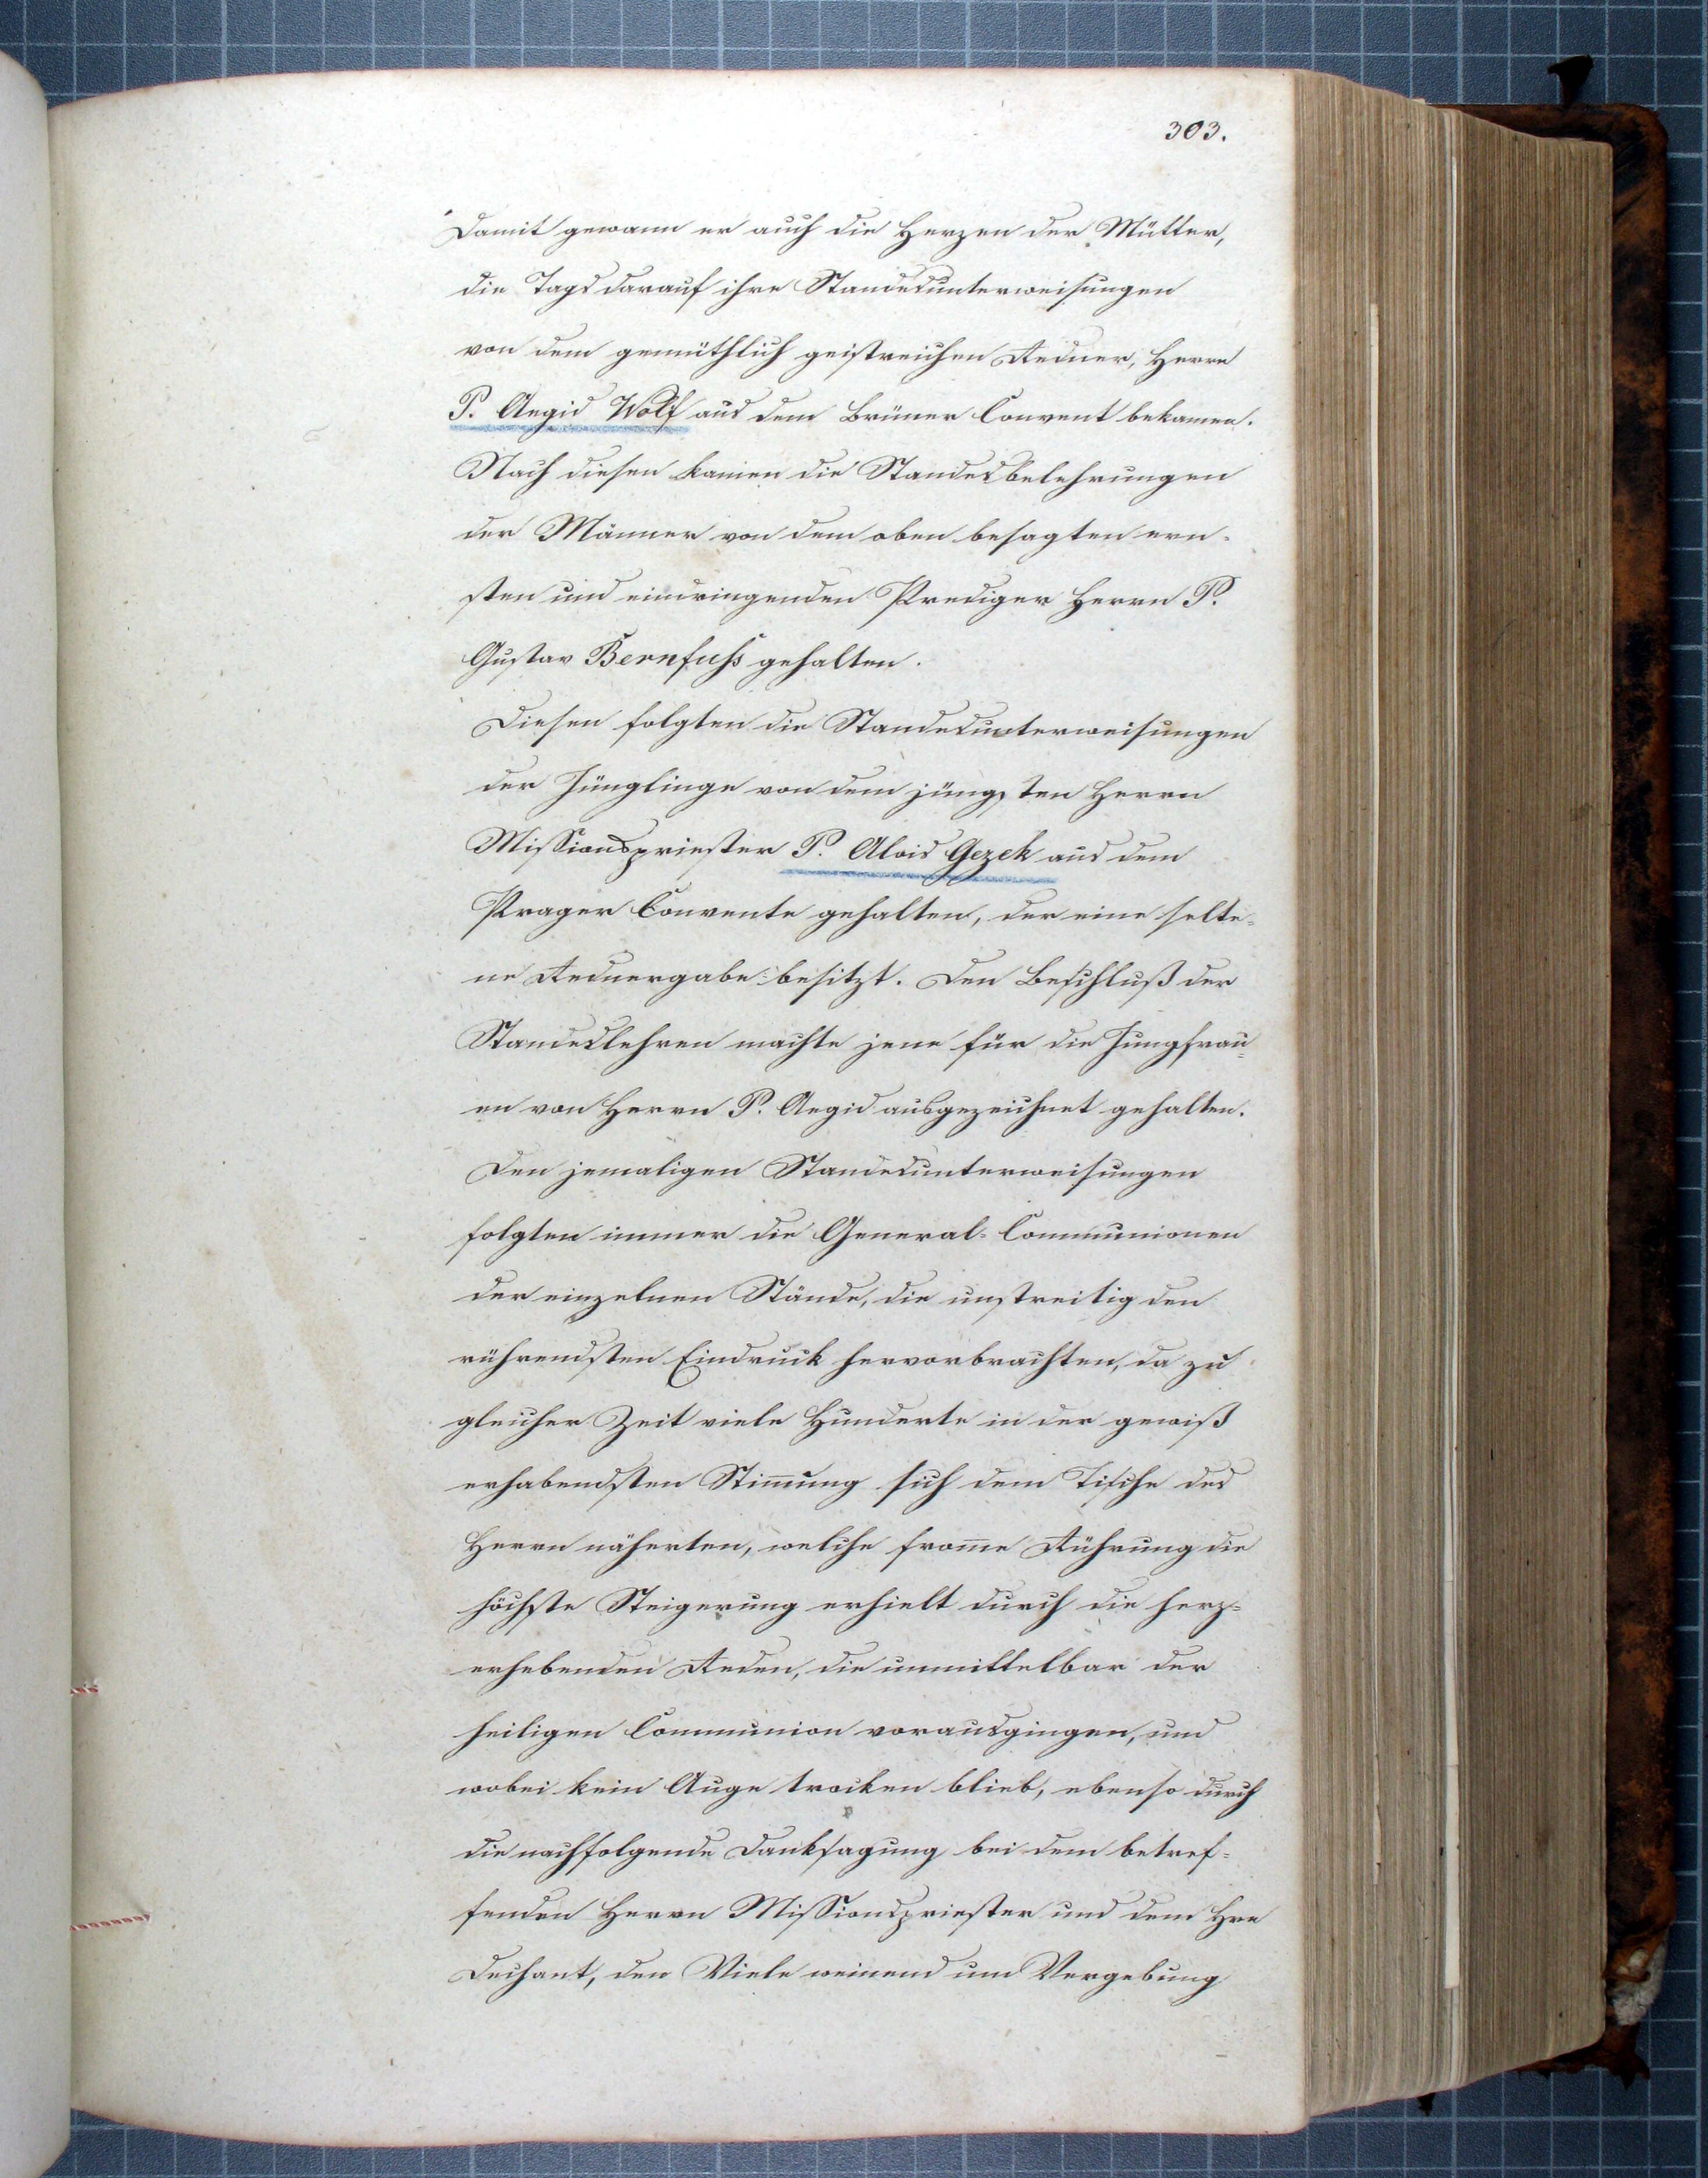 303.
Damit gewann er auch die Herzen der Mütter,
die Tags darauf ihre Standesunterweisungen
von dem gemüthlich geistreichen Redner, Herrn
P. Aegid Wolf aus dem Brüner Convent bekamen.
Nach diesen kamen die Standesbelehrungen
der Männer von dem oben besagten ern-
sten und eindringenden Prediger Herrn P.
Gustav Bernfuhs gehalten.
Diesen folgten die Standesunterweisungen
der Jünglinge von dem jüngsten Herrn
Missionspriester P. Alois Gezek aus dem
Prager Convente gehalten, der eine selte-
ne Rednergabe besitzt. Den Beschluß der
Standeslehren machte jene für die Jungfrau-
en von Herrn P. Aegid ausgezeichnet gehalten.
Den jemaligen Standesunterweisungen
folgten immer die General-Communionen
der einzelnen Stände, die unstreitig den
rührendsten Eindruck hervorbrachten, da zu
gleicher Zeit viele Hunderte in der gewiß
erhabendsten Stim̅ung sich dem Tische des
Herrn näherten, welche from̅e Rührung die
höchste Steigerung erhielt durch die herz-
erhebenden Reden, die unmittelbar der
heiligen Communion vorausgingen, und
wobei kein Auge trocken blieb, ebenso durch
die nachfolgende Danksagung bei dem betref-
fenden Herrn Missionspriester und dem Hrn
Dechant, den Viele weinend um Vergebung